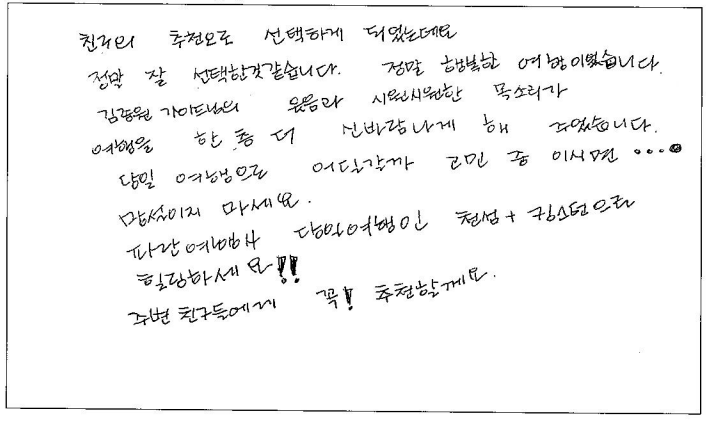 친구의 추천으로 선택하게 되었는데요
정말 잘 선택한것같습니다. 정말 행복한 여행이였습니다.
김종원 가이드님의 웃음과 시원시원한 목소리가
여행을 한 층 더 신바람나게 해 주었습니다.
당일 여행으로 어딜갈까 고민 중 이시면 ....
망설이지 마세요.
파란여행사 당일여행인 천섬 + 킹스턴으로
힐링하세요!!
주변 친구들에게 꼭! 추천할게요.